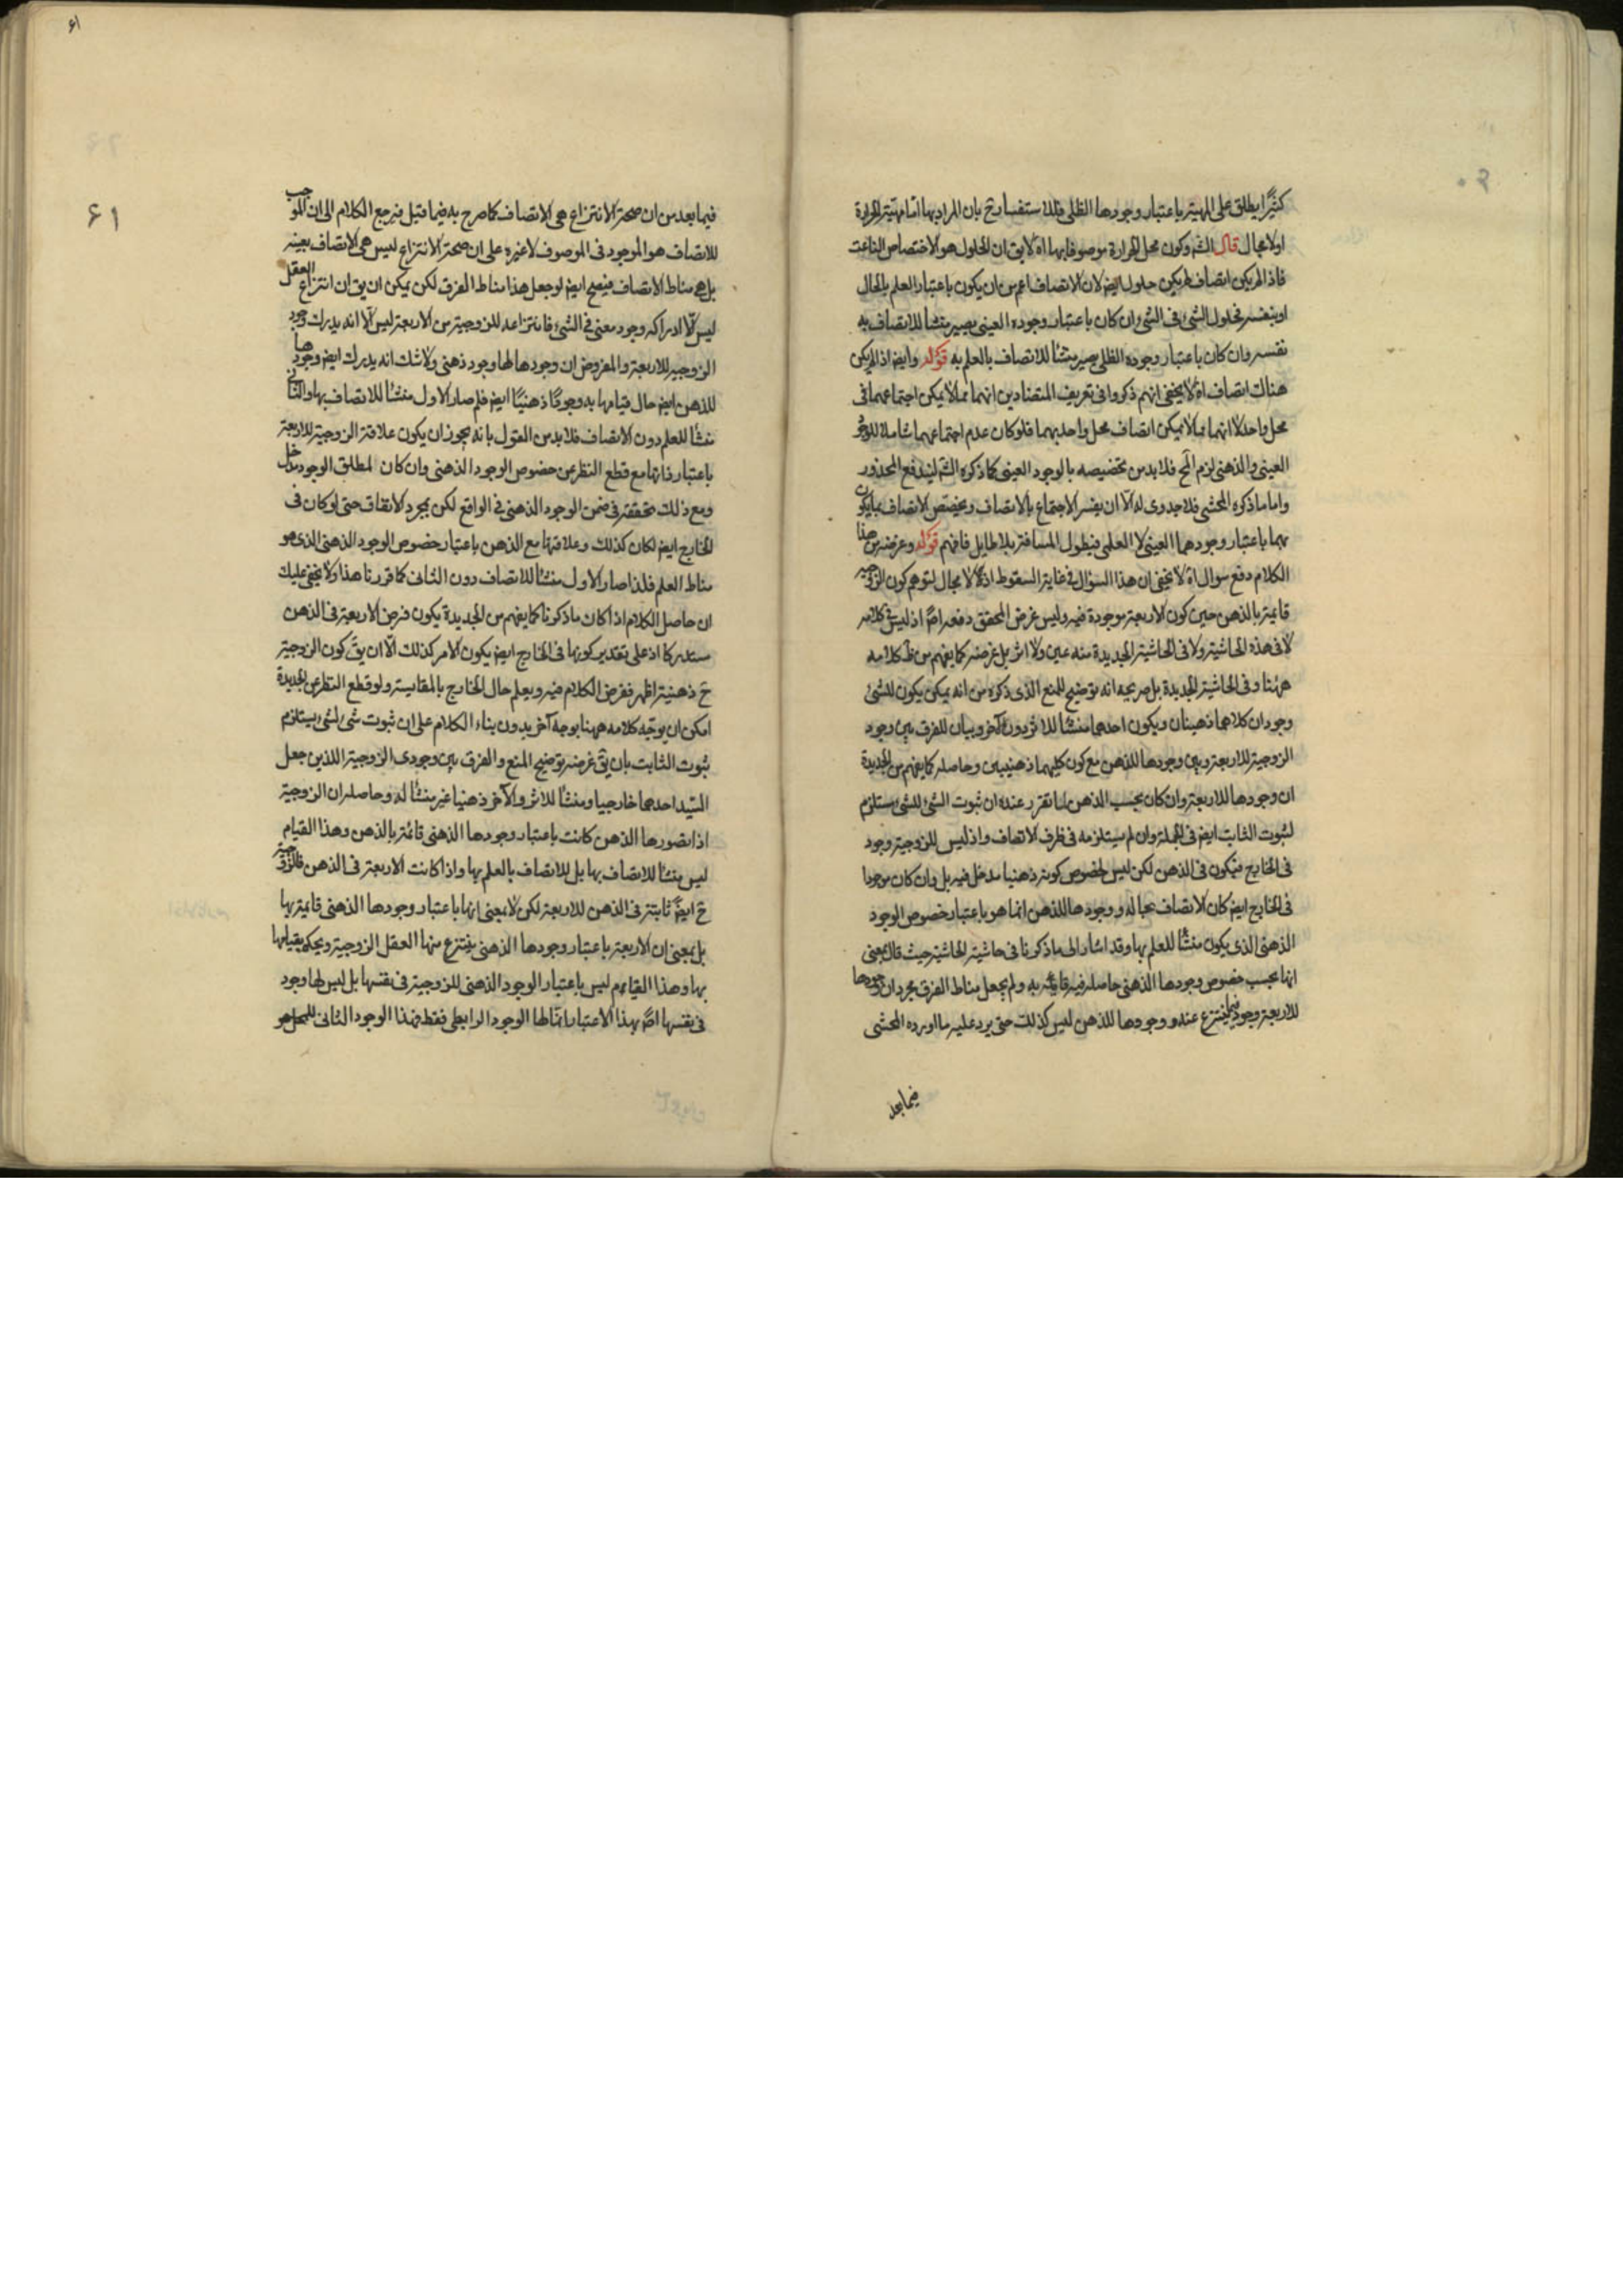 كثيرا يطلق على المهية باعتبار وجودها الظلى فللاستفسار ح بان المراد بها اما مهية الحرارة
اولا مجال قال الشم وكون محل الحرارة موصوفا بها اه لا يق ان الحلول هو الاختصاص الناعت
فاذا لم يكن اتصاف لم يكن حلول ايضا لان الاتصاف اعم من ان يكون باعتبار العلم بالحال
او بنفسه فحلول الشئ فى الشئ ان كان باعتبار وجوده العينى يصير منشأ للاتصاف به
نفسه وان كان باعتبار وجوده الظلى يصير منشأ للاتصاف بالعلم به قوله وايضا اذا لم يكن
هناك اتصاف اه لا يخفى انهم ذكروا فى تعريف المتضادين انهما مما لا يمكن اجتماعهما فى
محل واحد لا انهما مما لا يمكن اتصاف محل واحد بهما فلو كان عدم اجتماعهما شاملا للوجود
العينى والذهنى لزم المح فلا بد من تخصيصه بالوجود العينى كما ذكره الشم ليندفع المحذور
واما ما ذكره المحشى فلا جدوى له الا ان يفسر الاجتماع بالاتصاف ويخصص الاتصاف بما يكون
بهما باعتبار وجودهما العينى لا العلمى فيطول المسافة بلا طايل فافهم قوله وغرضه من هذا
الكلام دفع سوال اه لا يخفى ان هذا السؤال فى غاية السقوط اذ لا مجال لتوهم كون الزوجية
قايمة بالذهن حين كون الاربعة موجودة فيه وليس غرض المحقق دفعه اصلا اذ ليس فى كلامه
لا فى هذه الحاشية ولا فى الحاشية الجديدة منه عين ولا اثر بل غرضه كما يفهم من ظ كلامه
ههنا وفى الحاشية الجديدة بل صريحه انه توضيح للمنع الذى ذكره من انه يمكن يكون للشئ
وجودان كلاهما ذهنيان ويكون احدهما منشأ للاثر دون الآخر وبيان للفرق بين وجود
الزوجية للاربعة وبين وجودها للذهن مع كون كليهما ذهنيين وحاصله كما يفهم من الجديدة
ان وجودها للاربعة وان كان بحسب الذهن لما تقرر عنده ان ثبوت الشئ للشئ يستلزم
لثبوت الثابت ايضا فى الجملة وان لم يستلزمه فى ظرف الاتصاف واذ ليس للزوجية وجود
فى الخارج فيكون فى الذهن لكن ليس لخصوص كونه ذهنيا مدخل فيه بل وان كان موجودا
فى الخارج ايضا كان الاتصاف بحاله ووجودها للذهن انما هو باعتبار خصوص الوجود
الذهنى الذى يكون منشأ للعلم بها وقد اشار الى ما ذكرنا فى حاشية الحاشية حيث قال بمعنى
انها بحسب خصوص وجودها الذهنى حاصلة فيه قايمة به ولم يجعل مناط الفرق مجرد ان وجودها
للاربعة وجود ينتزع عنه ووجودها للذهن ليس كذلك حتى يرد عليه ما اورده المحشى
فيما بعد
۶۱
۶۱
فيما بعد من ان صحة الانتزاع هى الاتصاف كما صرح به فيما قبل فيرجع الكلام الى ان الموجب
للاتصاف هو الموجود فى الموصوف لا غيره على ان صحة الانتزاع ليس هى الاتصاف بعينه
بل هى مناط الاتصاف فيصح ايضا لو جعل هذا مناط الفرق لكن يمكن ان يق ان انتزاع العقل
ليس الا ادراكه وجود معنى فى الشئ فانتزاعه للزوجية من الاربعة ليس الا انه يدرك وجود
الزوجية للاربعة والمفروض ان وجودها لها وجود ذهنى ولا شك انه يدرك ايضا وجودها
للذهن ايضا حال قيامها به وجودا ذهنيا ايضا فلم صار الاول منشأ للاتصاف بها والثانى
منشأ للعلم دون الاتصاف فلا بد من القول بانه يجوز ان يكون علاقة الزوجية للاربعة
باعتبار ذاتها مع قطع النظر عن خصوص الوجود الذهنى وان كان لمطلق الوجود مدخل
ومع ذلك متحققة فى ضمن الوجود الذهنى فى الواقع لكن بمجرد الاتفاق حتى لو كان فى
الخارج ايضا لكان كذلك وعلاقتها مع الذهن باعتبار خصوص الوجود الذهنى الذى هو
مناط العلم فلذا صار الاول منشأ للاتصاف دون الثانى كما قررنا هذا ولا يخفى عليك
ان حاصل الكلام اذا كان ما ذكرنا كما يفهم من الجديدة يكون فرض الاربعة فى الذهن
مستدركا اذ على تقدير كونها فى الخارج ايضا يكون الامر كذلك الا ان يق كون الزوجية
ح ذهنية اظهر ففرض الكلام فيه ويعلم حال الخارج بالمقايسة ولو قطع النظر عن الجديدة
امكن ان يوجه كلامه ههنا بوجه آخر بدون بناء الكلام على ان ثبوت شئ لشئ يستلزم
ثبوت الثابت بان يق غرضه توضيح المنع والفرق بين وجودى الزوجية اللذين جعل
السيد احدهما خارجيا ومنشأ للاثر والآخر ذهنيا غير منشأ له وحاصله ان الزوجية
اذا تصورها الذهن كانت باعتبار وجودها الذهنى قائمة بالذهن وهذا القيام
ليس منشأ للاتصاف بها بل للاتصاف بالعلم بها واذا كانت الاربعة فى الذهن فالزوجية
ح ايضا ثابتة فى الذهن للاربعة لكن لا بمعنى انها باعتبار وجودها الذهنى قايمة بها
بل بمعنى ان الاربعة باعتبار وجودها الذهنى ينتزع منها العقل الزوجية ويحكم بقيامها
بها وهذا القيام ليس باعتبار الوجود الذهنى للزوجية فى نفسها بل ليس لها وجود
فى نفسها اصلا بهذا الاعتبار انما لها الوجود الرابطى فقط فهذا الوجود الثانى للمحل هو